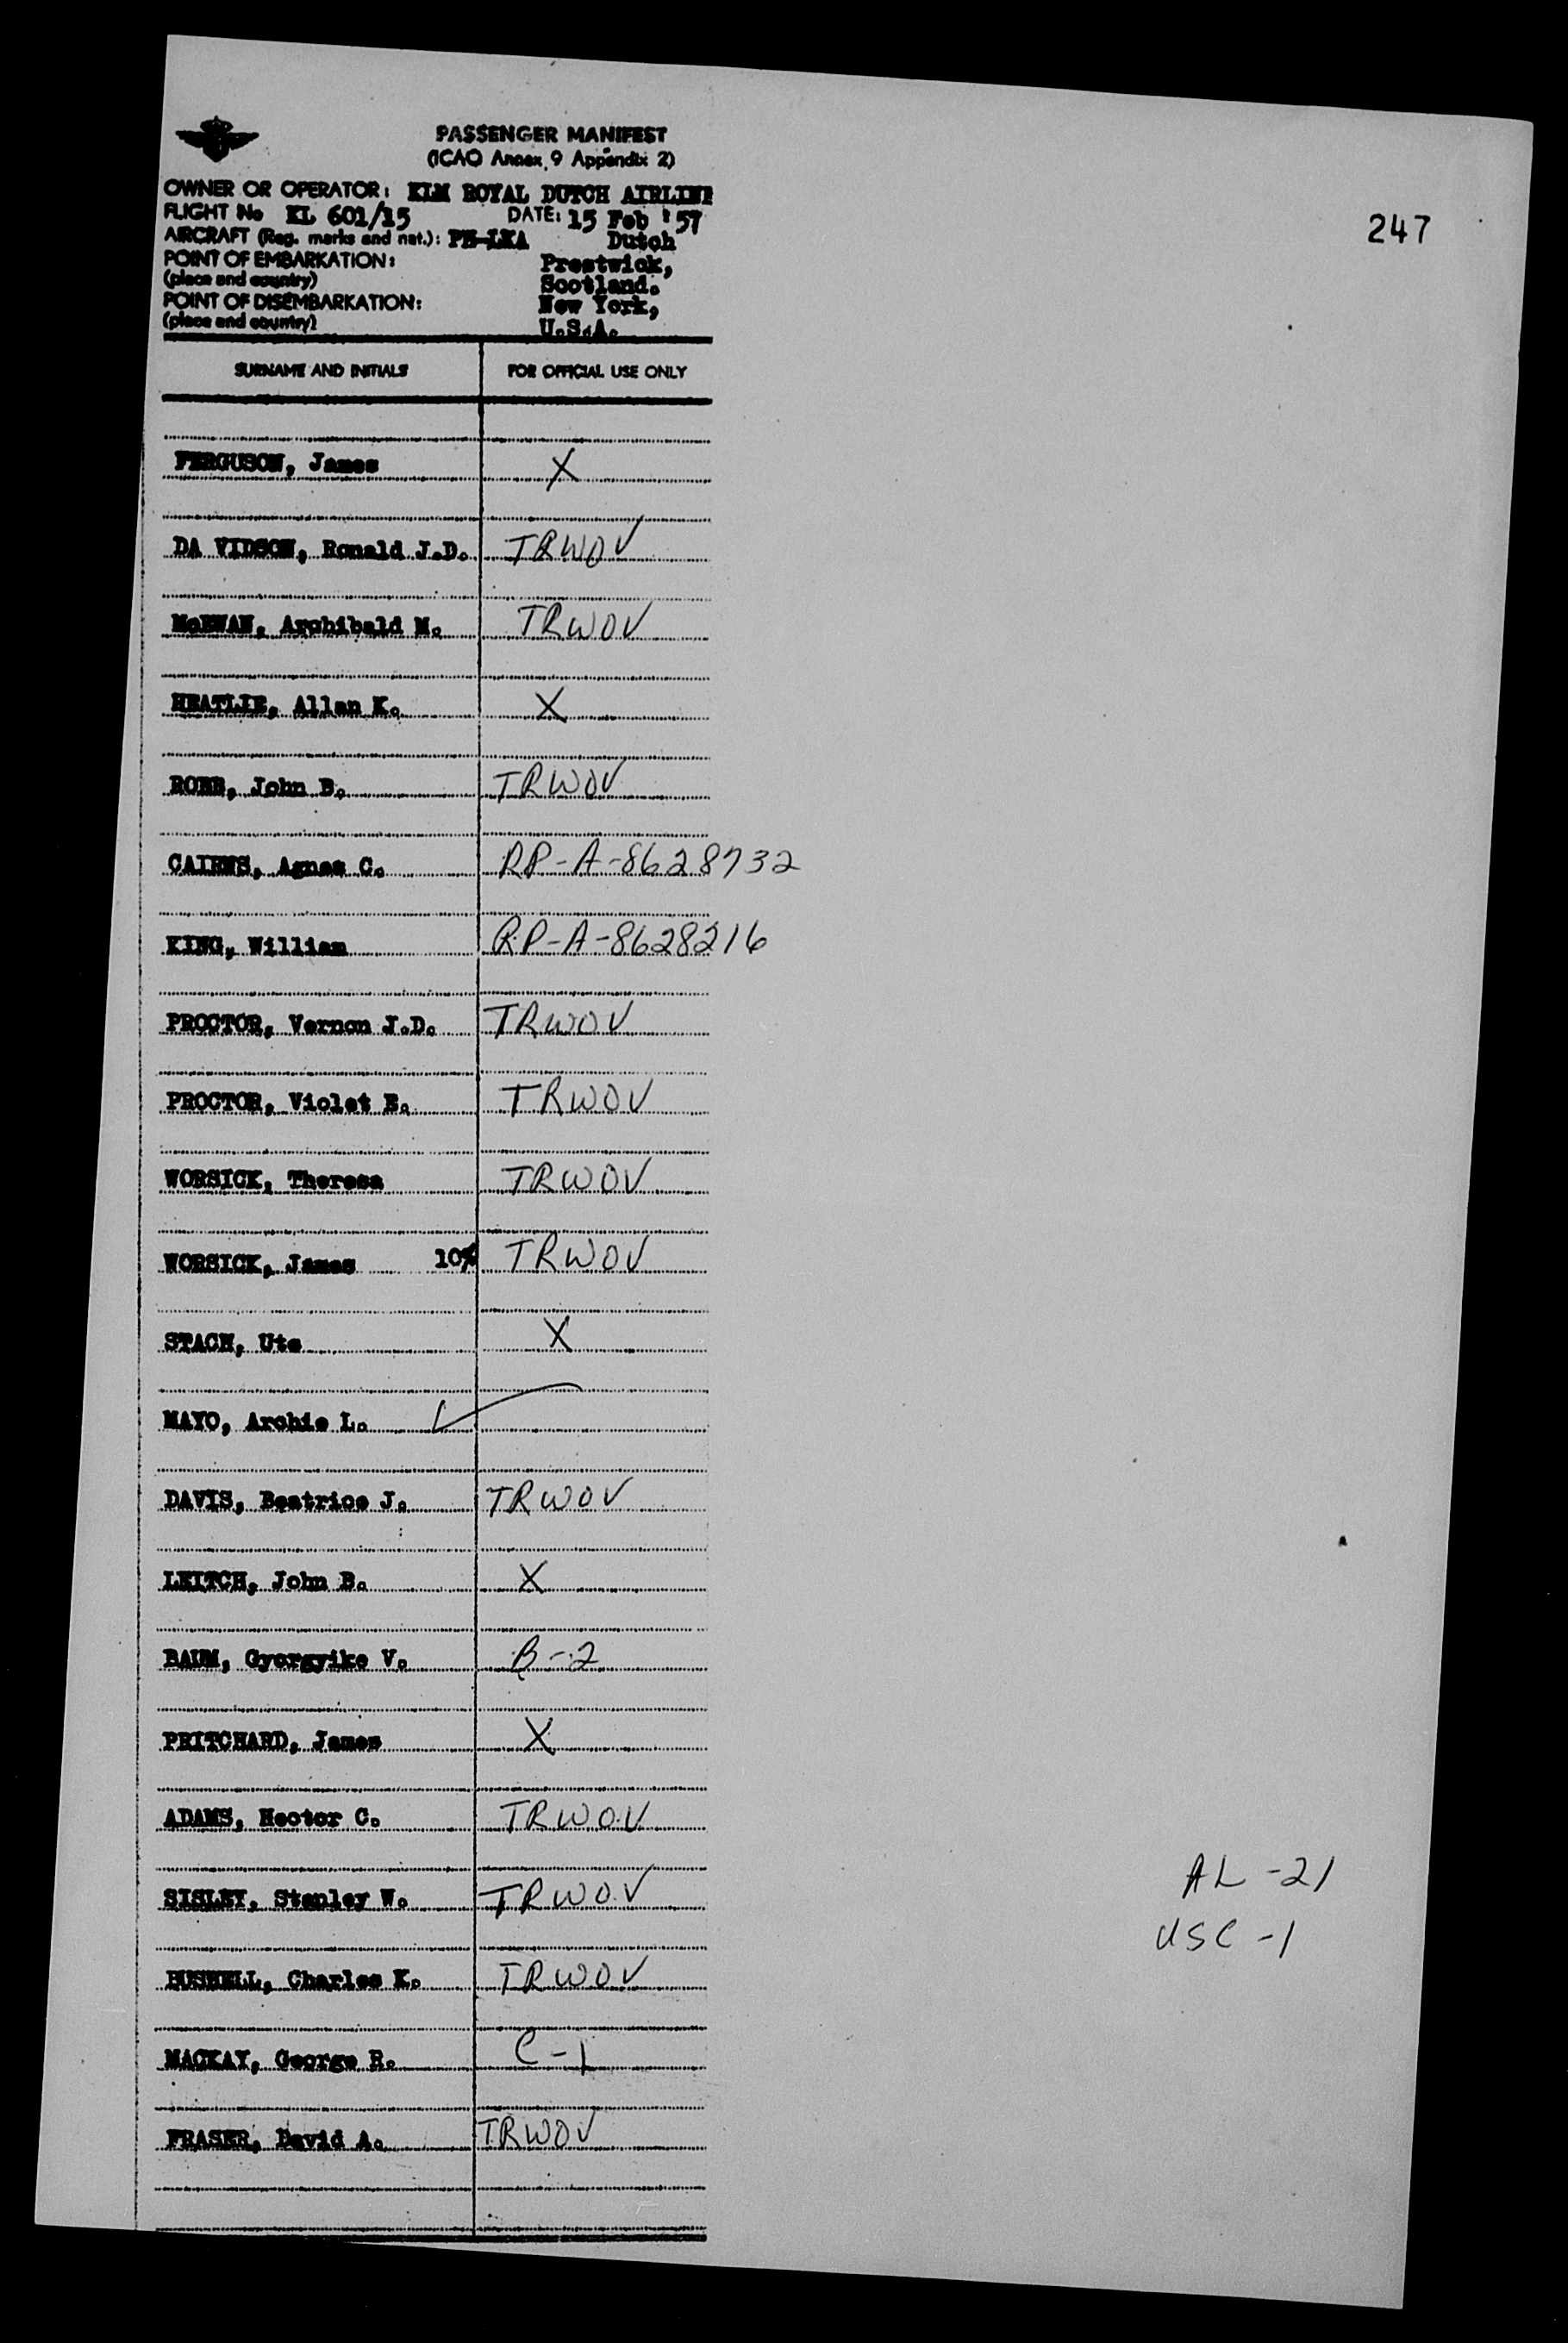 PASSENGER MANIFEST
(ICAO Annex 9 Appendix 2)
OWNER OR OPERATOR: KLM ROYAL DUTCH AIRLINE
FLIGHT No KL 601/15 DATE: 15 Feb '57
AIRCRAFT (Reg. marks and nat.): PH-LKA Dutch
247
POINT OF EMBARKATION: Prestwick,
(place and country) Scotland.
POINT OF DISEMBARKATION: New York,
(place and country) U.S.A.
SURNAME AND INITIALS FOR OFFICIAL USE ONLY
FERGUSON, James X
DA VIDSON, Ronald J.D. TRWOV
McEWAN, Archibald M. TRWOV
HEATLIE, Allan K. X
ROBB, John B. TRWOV
CAIRNS, Agnes C. RP-A-8628732
KING, William RP-A-8628216
PROCTOR, Vernon J.D. TRWOV
PROCTOR, Violet E. TRWOV
WORSICK, Theresa TRWOV
WORSICK, James 10% TRWOV
STACH, Ute X
MAYO, Archie L.
DAVIS, Beatrice J. TRWOV
LEITCH, John B. X
BAUM, Gyorgyike V. B-2
PRITCHARD, James X
ADAMS, Hector C. TRWOV
SISLEY, Stanley W. TRWOV
AL-21
USC-1
BUSHELL, Charles K. TRWOV
MACKAY, George R. C-1
FRASER, David A. TRWOV